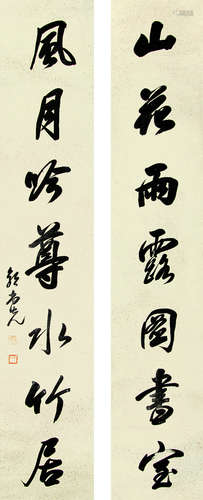 山花雨露圖書室
風月吟尊水竹居
鄭尚先